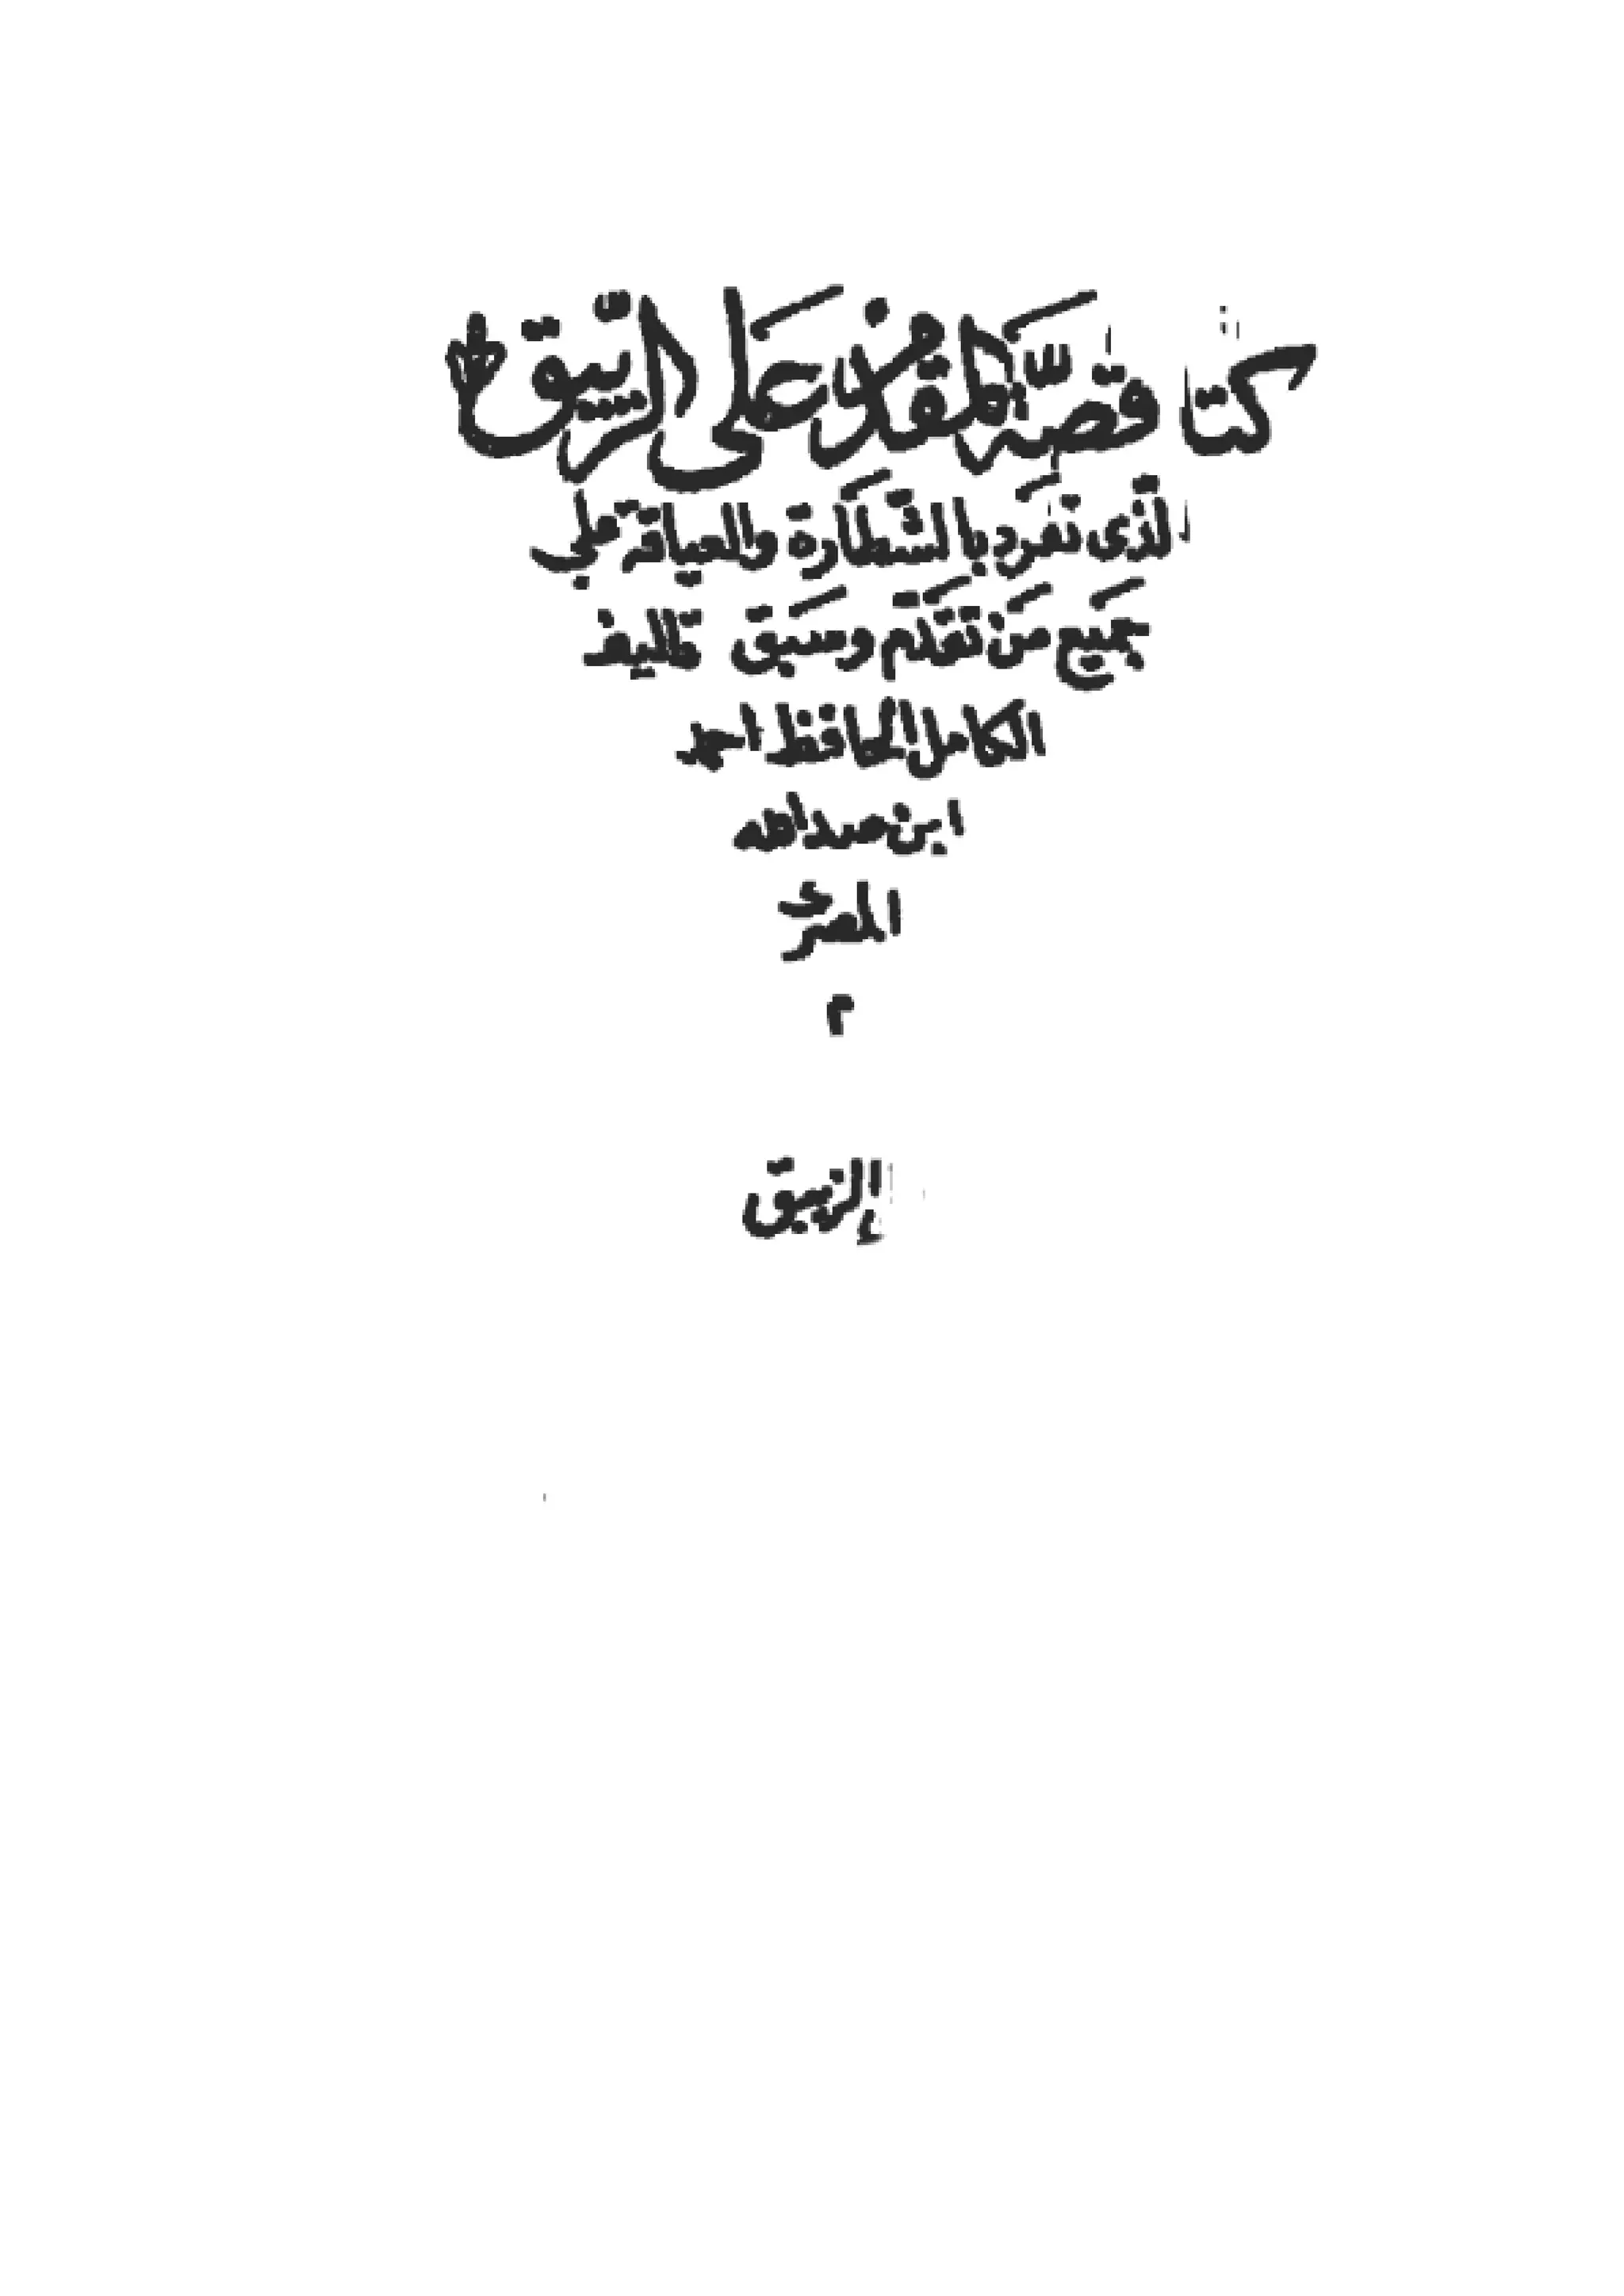 كتا قصّة المقدم على الزّيبق
الذّى تفرد بالشّطارة والعياقة على
جميع من تقدّم وسبق تاليف
الكامل الحافظ احمد
ابن عبدالله
المصرى
م
الزيبق